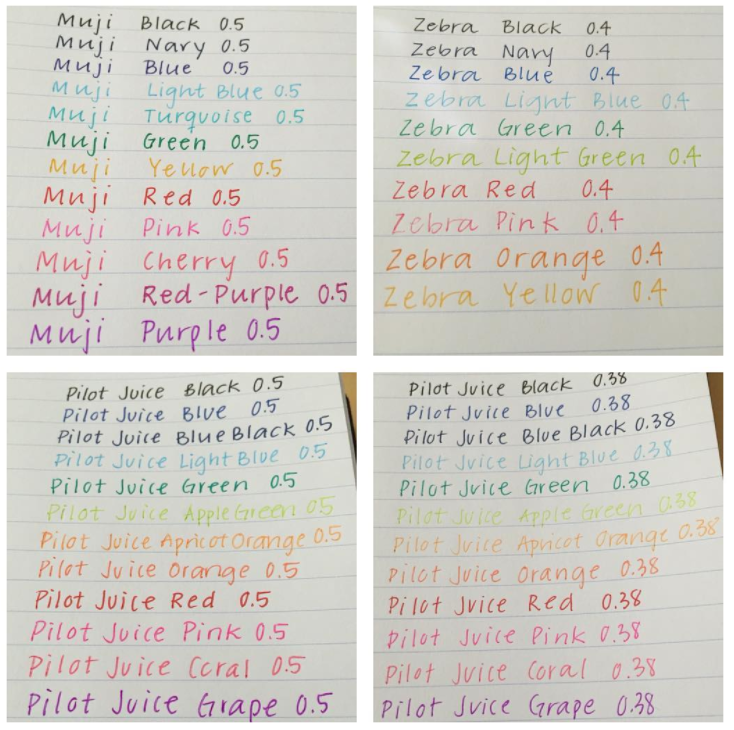 Muji Black 0.5
Muji Navy 0.5
Muji Blue 0.5
Muji Light Blue 0.5
Muji Turquoise 0.5
Muji Green 0.5
Muji Yellow 0.5
Muji Red 0.5
Muji Pink 0.5
Muji Cherry 0.5
Muji Red-Purple 0.5
Muji Purple 0.5
Zebra Black 0.4
Zebra Navy 0.4
Zebra Blue 0.4
Zebra Light Blue 0.4
Zebra Green 0.4
Zebra Light Green 0.4
Zebra Red 0.4
Zebra Pink 0.4
Zebra Orange 0.4
Zebra Yellow 0.4
Pilot Juice Black 0.5
Pilot Juice Blue 0.5
Pilot Juice Blue Black 0.5
Pilot Juice Light Blue 0.5
Pilot Juice Green 0.5
Pilot Juice Apple Green 0.5
Pilot Juice Apricot Orange 0.5
Pilot Juice Orange 0.5
Pilot Juice Red 0.5
Pilot Juice Pink 0.5
Pilot Juice Coral 0.5
Pilot Juice Grape 0.5
Pilot Juice Black 0.38
Pilot Juice Blue 0.38
Pilot Juice Blue Black 0.38
Pilot Juice Light Blue 0.38
Pilot Juice Green 0.38
Pilot Juice Apple Green 0.38
Pilot Juice Apricot Orange 0.38
Pilot Juice Orange 0.38
Pilot Juice Red 0.38
Pilot Juice Pink 0.38
Pilot Juice Coral 0.38
Pilot Juice Grape 0.38